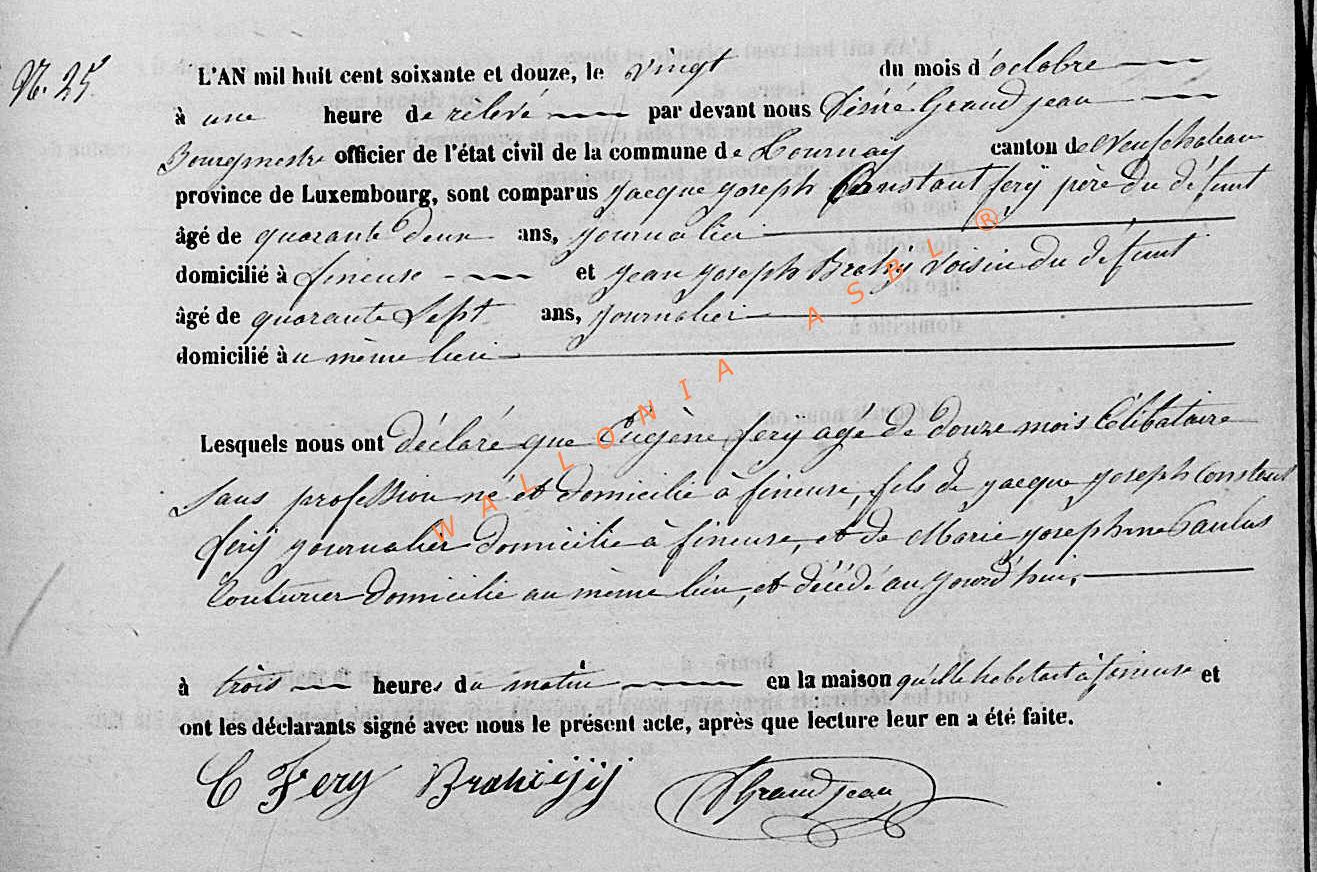 N. 25
L'AN mil huit cent soixante et douze, le vingt du mois d'octobre
à une heure de relevé par devant nous Désiré Grandjean
Bourgmestre officier de l'état civil de la commune de Tournay canton de Neufchateau
province de Luxembourg, sont comparus Jacque Joseph Constant fery père du défunt
âgé de quarante deux ans, journalier
domicilié à fineuse et Jean Joseph voisin du défunt
âgé de quarante Sept ans, journalier
domicilié au même lieu
Lesquels nous ont déclaré que Eugène fery agé de douze mois Célibataire
Sans profession né et domicilié à fineuse, fils de Jacque Joseph Constant
fery journalier domicilié à fineuse, et de Marie Josephine Paulus
Couturier domicilié au même lieu, et décédé aujourd'hui,
à trois heures du matin en la maison qu'elle habitait à fineuse et
ont les déclarants signé avec nous le présent acte, après que lecture leur en a été faite.
C Fery Grandjean
WALLONIA ASBL ®